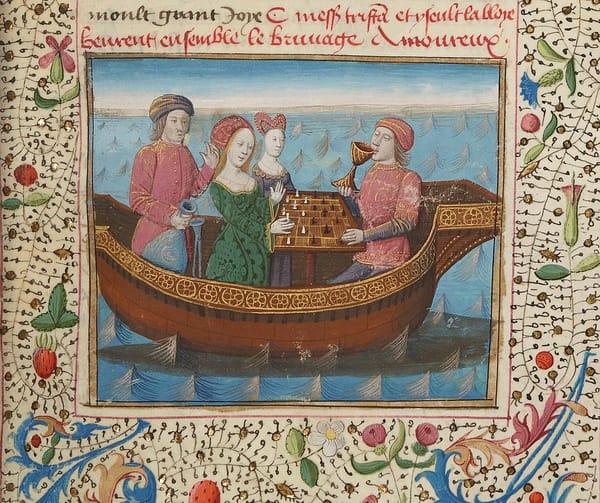 moult grant Joye C mess tristã et yseult la bloye
beurent ensemble le bruvage Amoureux.